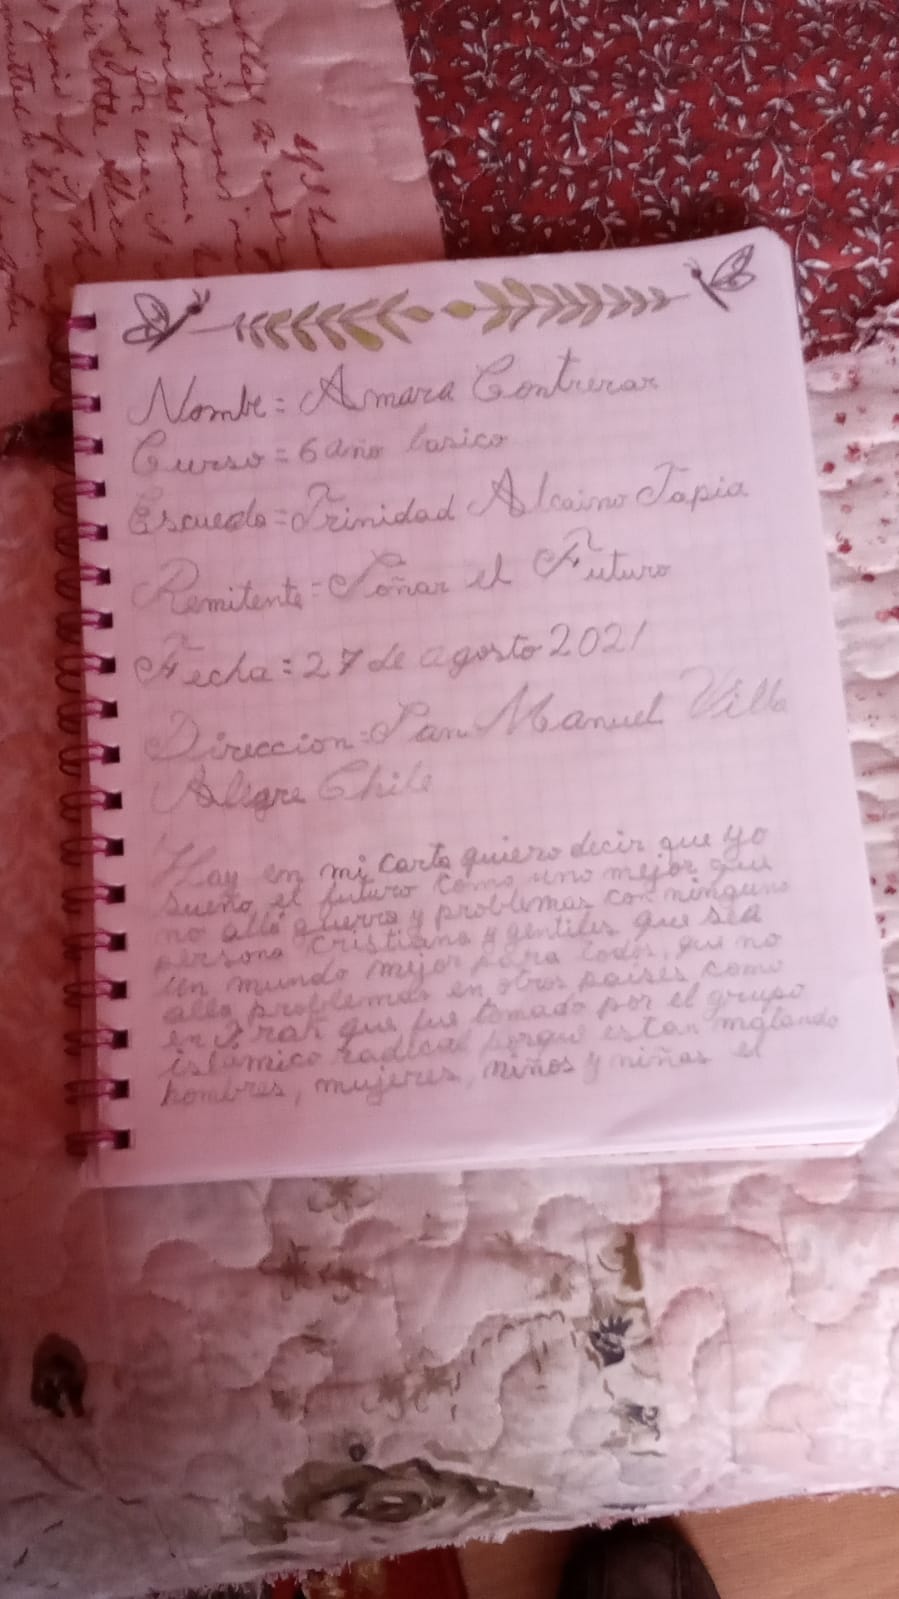 Nombre = Amara Contreras
Curso = 6 año basico
Escuela = Trinidad Alcaino Tapia
Remitente = Soñar el Futuro
Fecha = 27 de agosto 2021
Direccion = San Manuel Villa
Alegre Chile
Hay en mi carta quiero decir que yo
sueño el futuro como uno mejor que
no alla guerra y problemas con ninguno
persona cristiana y gentiles que sea
un mundo mejor para todos, que no
alla problemas en otros paises como
en Irak que fue tomado por el grupo
islamico radical porque estan matando
hombres, mujeres, niños y niñas el